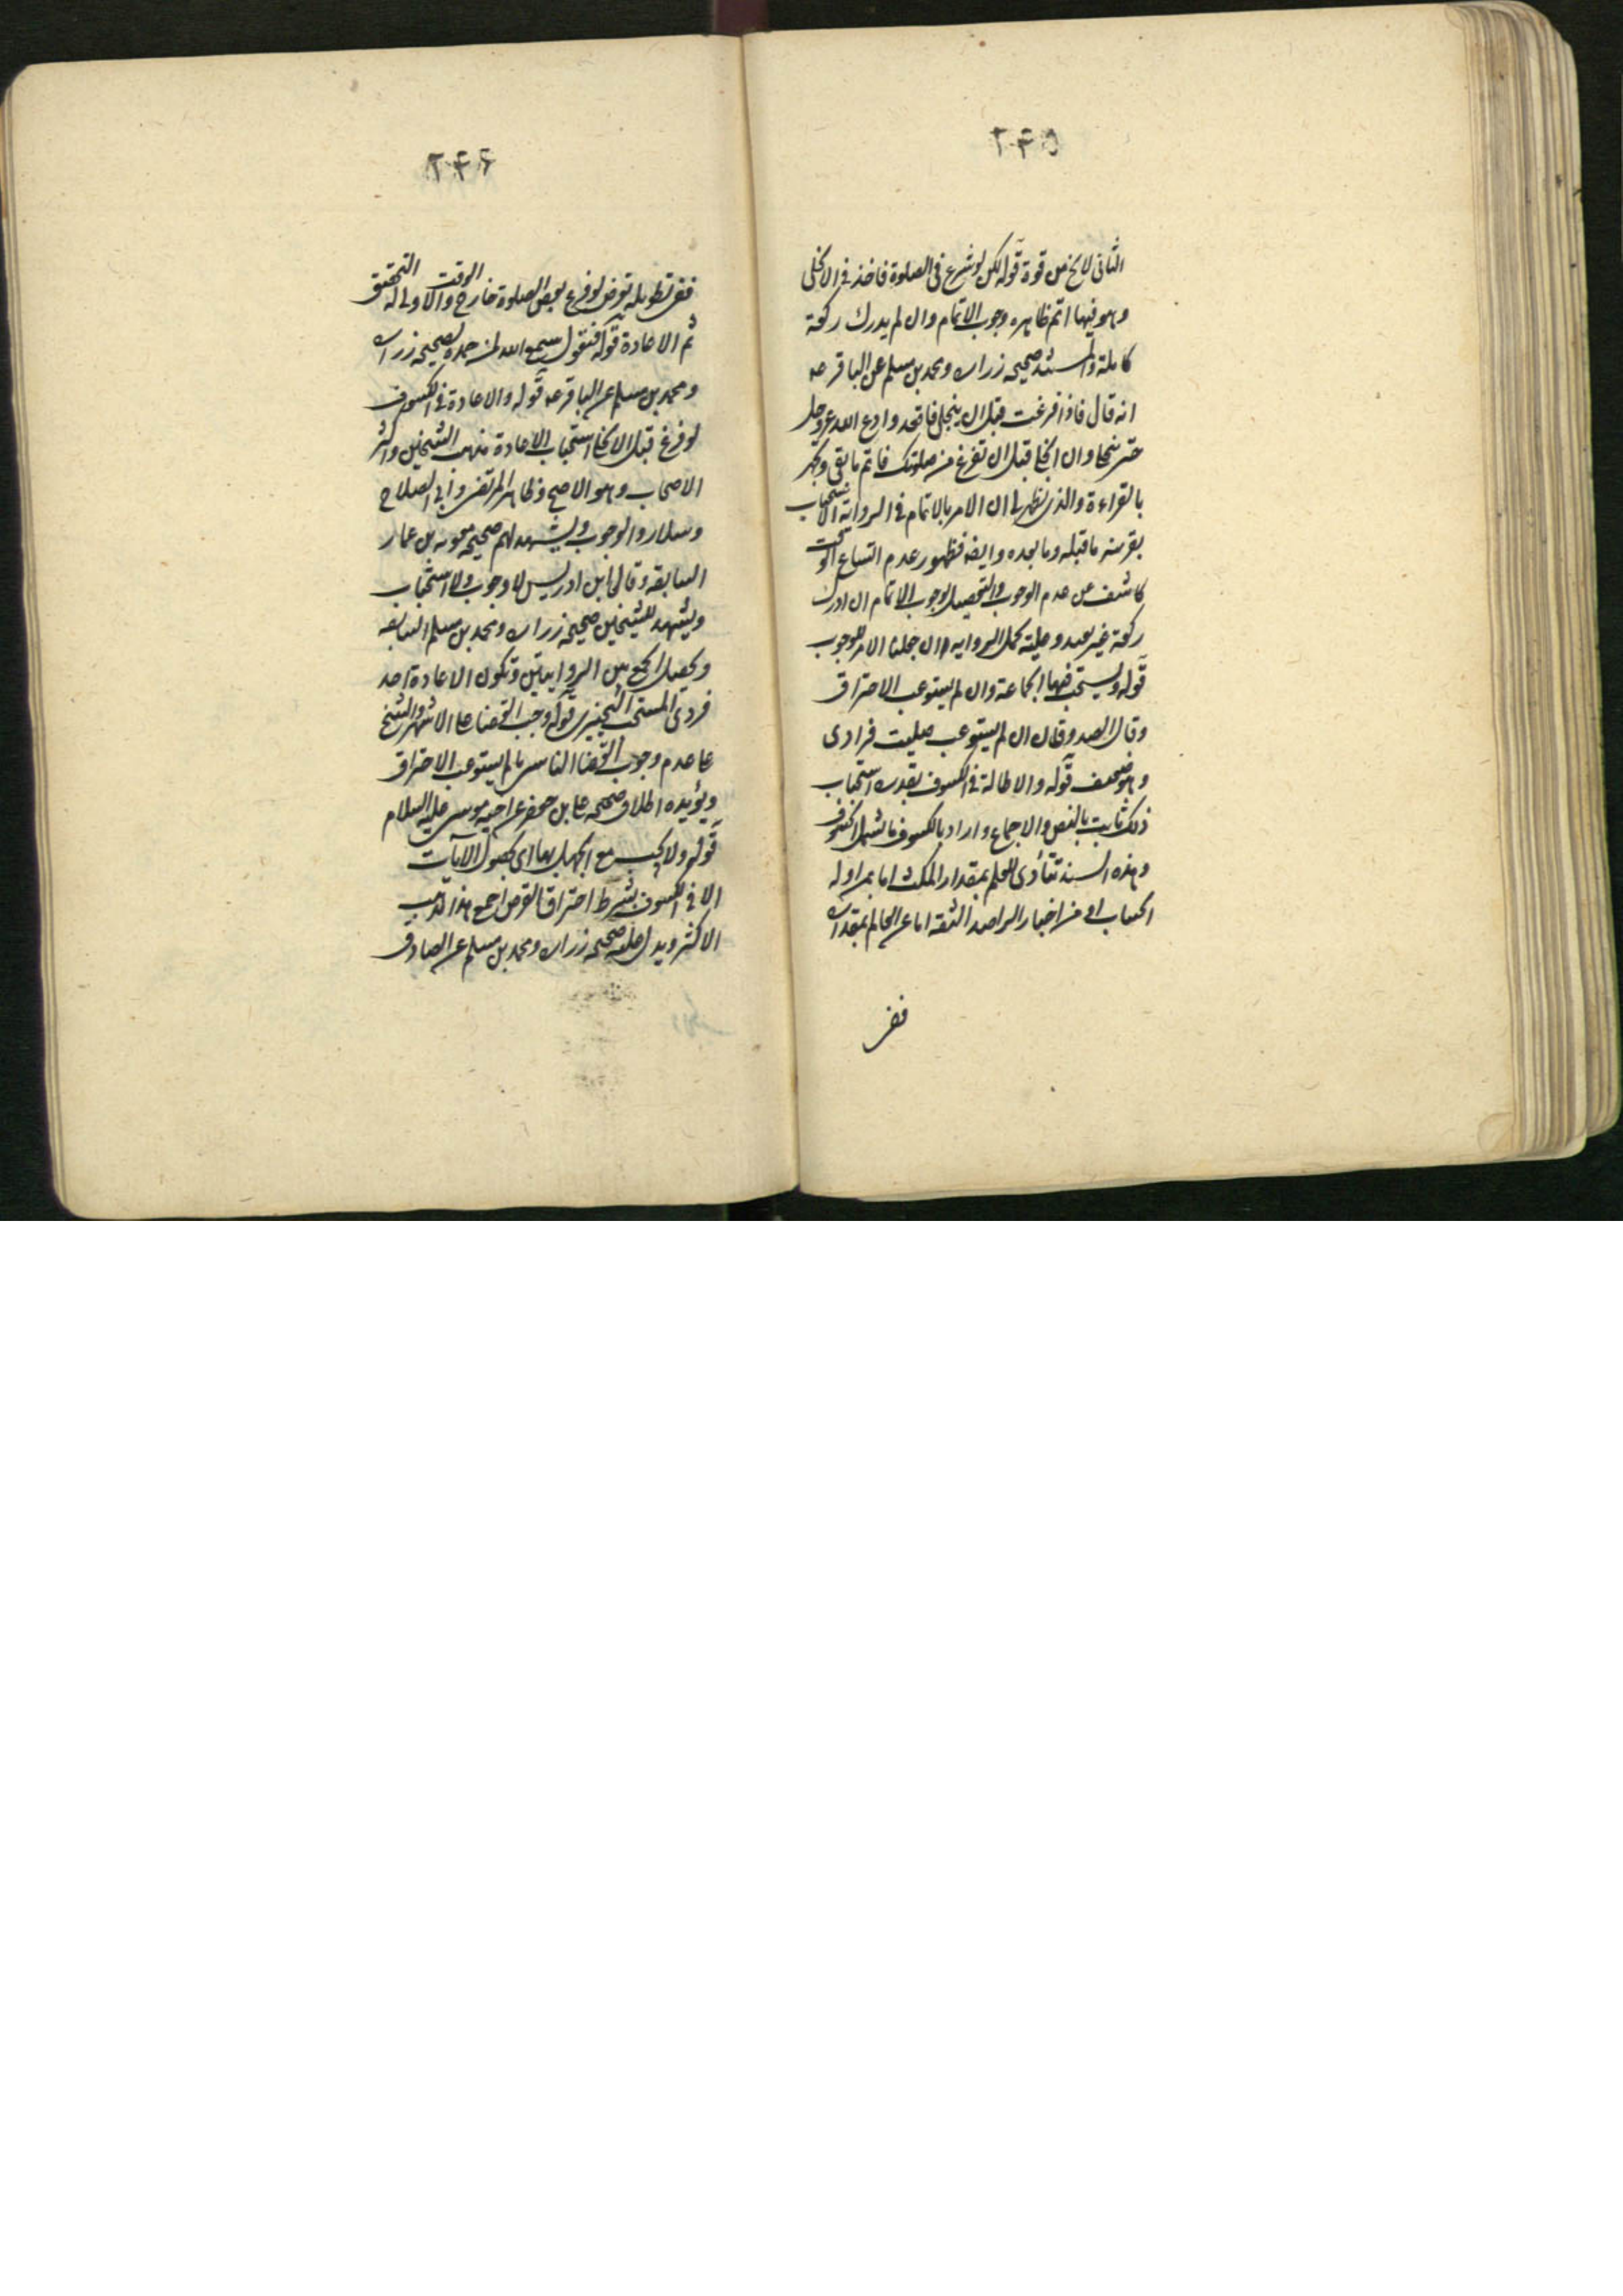 ۲۴۵
الثانى لا يخ من قوة قوله لكن لو شرع فى الصلوة فاخذ فى الانجلى
وهو فيها اتم ظاهره وجوب الاتمام وان لم يدرك ركعة
كاملة والمستند صحيحه زراره ومحمد بن مسلم عن الباقر عه
انه قال فاذا فرغت قبل ان ينجلى فاقعد وادع الله عز وجل
حتى ينجلى وان انجلى قبل ان تفرغ من صلوتك فاتم ما بقى وتجهر
بالقراءة والذى يظهر لى ان الامر بالاتمام فى الرواية للاستحباب
بقرينه ما قبله وما بعده وايضه فظهور عدم اتساع الوقت
كاشف عن عدم الوجوب والتفصيل بوجوب الاتمام ان ادرك
ركعة غير بعيد وعليه تحمل الروايه ان جعلنا الامر للوجوب
قوله ويستحب فيها الجماعة وان لم يستوعب الاحتراق
وقال الصدوقان ان لم يستوعب صليت فرادى
وهو ضعيف قوله والاطالة فى الكسوف بقدره استحباب
ذلك ثابت بالنص والاجماع واراد بالكسوف ما يشمل الخسوف
وهذه السنه تتأدى للعلم بمقدار المكث اما بمراوله
الحساب او من اخبار الراصد الثقه اما غير العالم بمقداره
ففى
۲۴۶
ففى تطويله تعرض لوقوع بعض الصلوة خارج الوقت والاولى له التخفيق
ثم الاعادة قوله فنقول سمع الله لمن حمده لصحيحه زراره
ومحمد بن مسلم عن الباقر عه قوله والاعادة فى الكسوف
لو فرغ قبل الانجلا استحباب الاعادة مذهب الشيخين واكثر
الاصحاب وهو الاصح وظاهر المرتضى وابى الصلاح
وسلار والوجوب ويشهد لهم صحيحه معويه بن عمار
السابقه وقال ابن ادريس لا وجوب ولا استحباب
ويشهد للشيخين صحيحه زراره ومحمد بن مسلم السابقه
ويحصل الجمع بين الروايتين وتكون الاعادة احد
فردى المستحب التخييرى قوله وجب القضا على الاشهر والشيخ
على عدم وجوب القضا الناسى ما لم يستوعب الاحتراق
ويؤيده اطلاق صحيحه على بن جعفر عن اخيه موسى عليه السلام
قوله ولا يجب مع الجهل بها اى بحصول الآيات
الا فى الكسوف بشرط احتراق القرص اجمع هذا مذهب
الاكثر ويدل عليه صحيحه زراره ومحمد بن مسلم عن الصادق